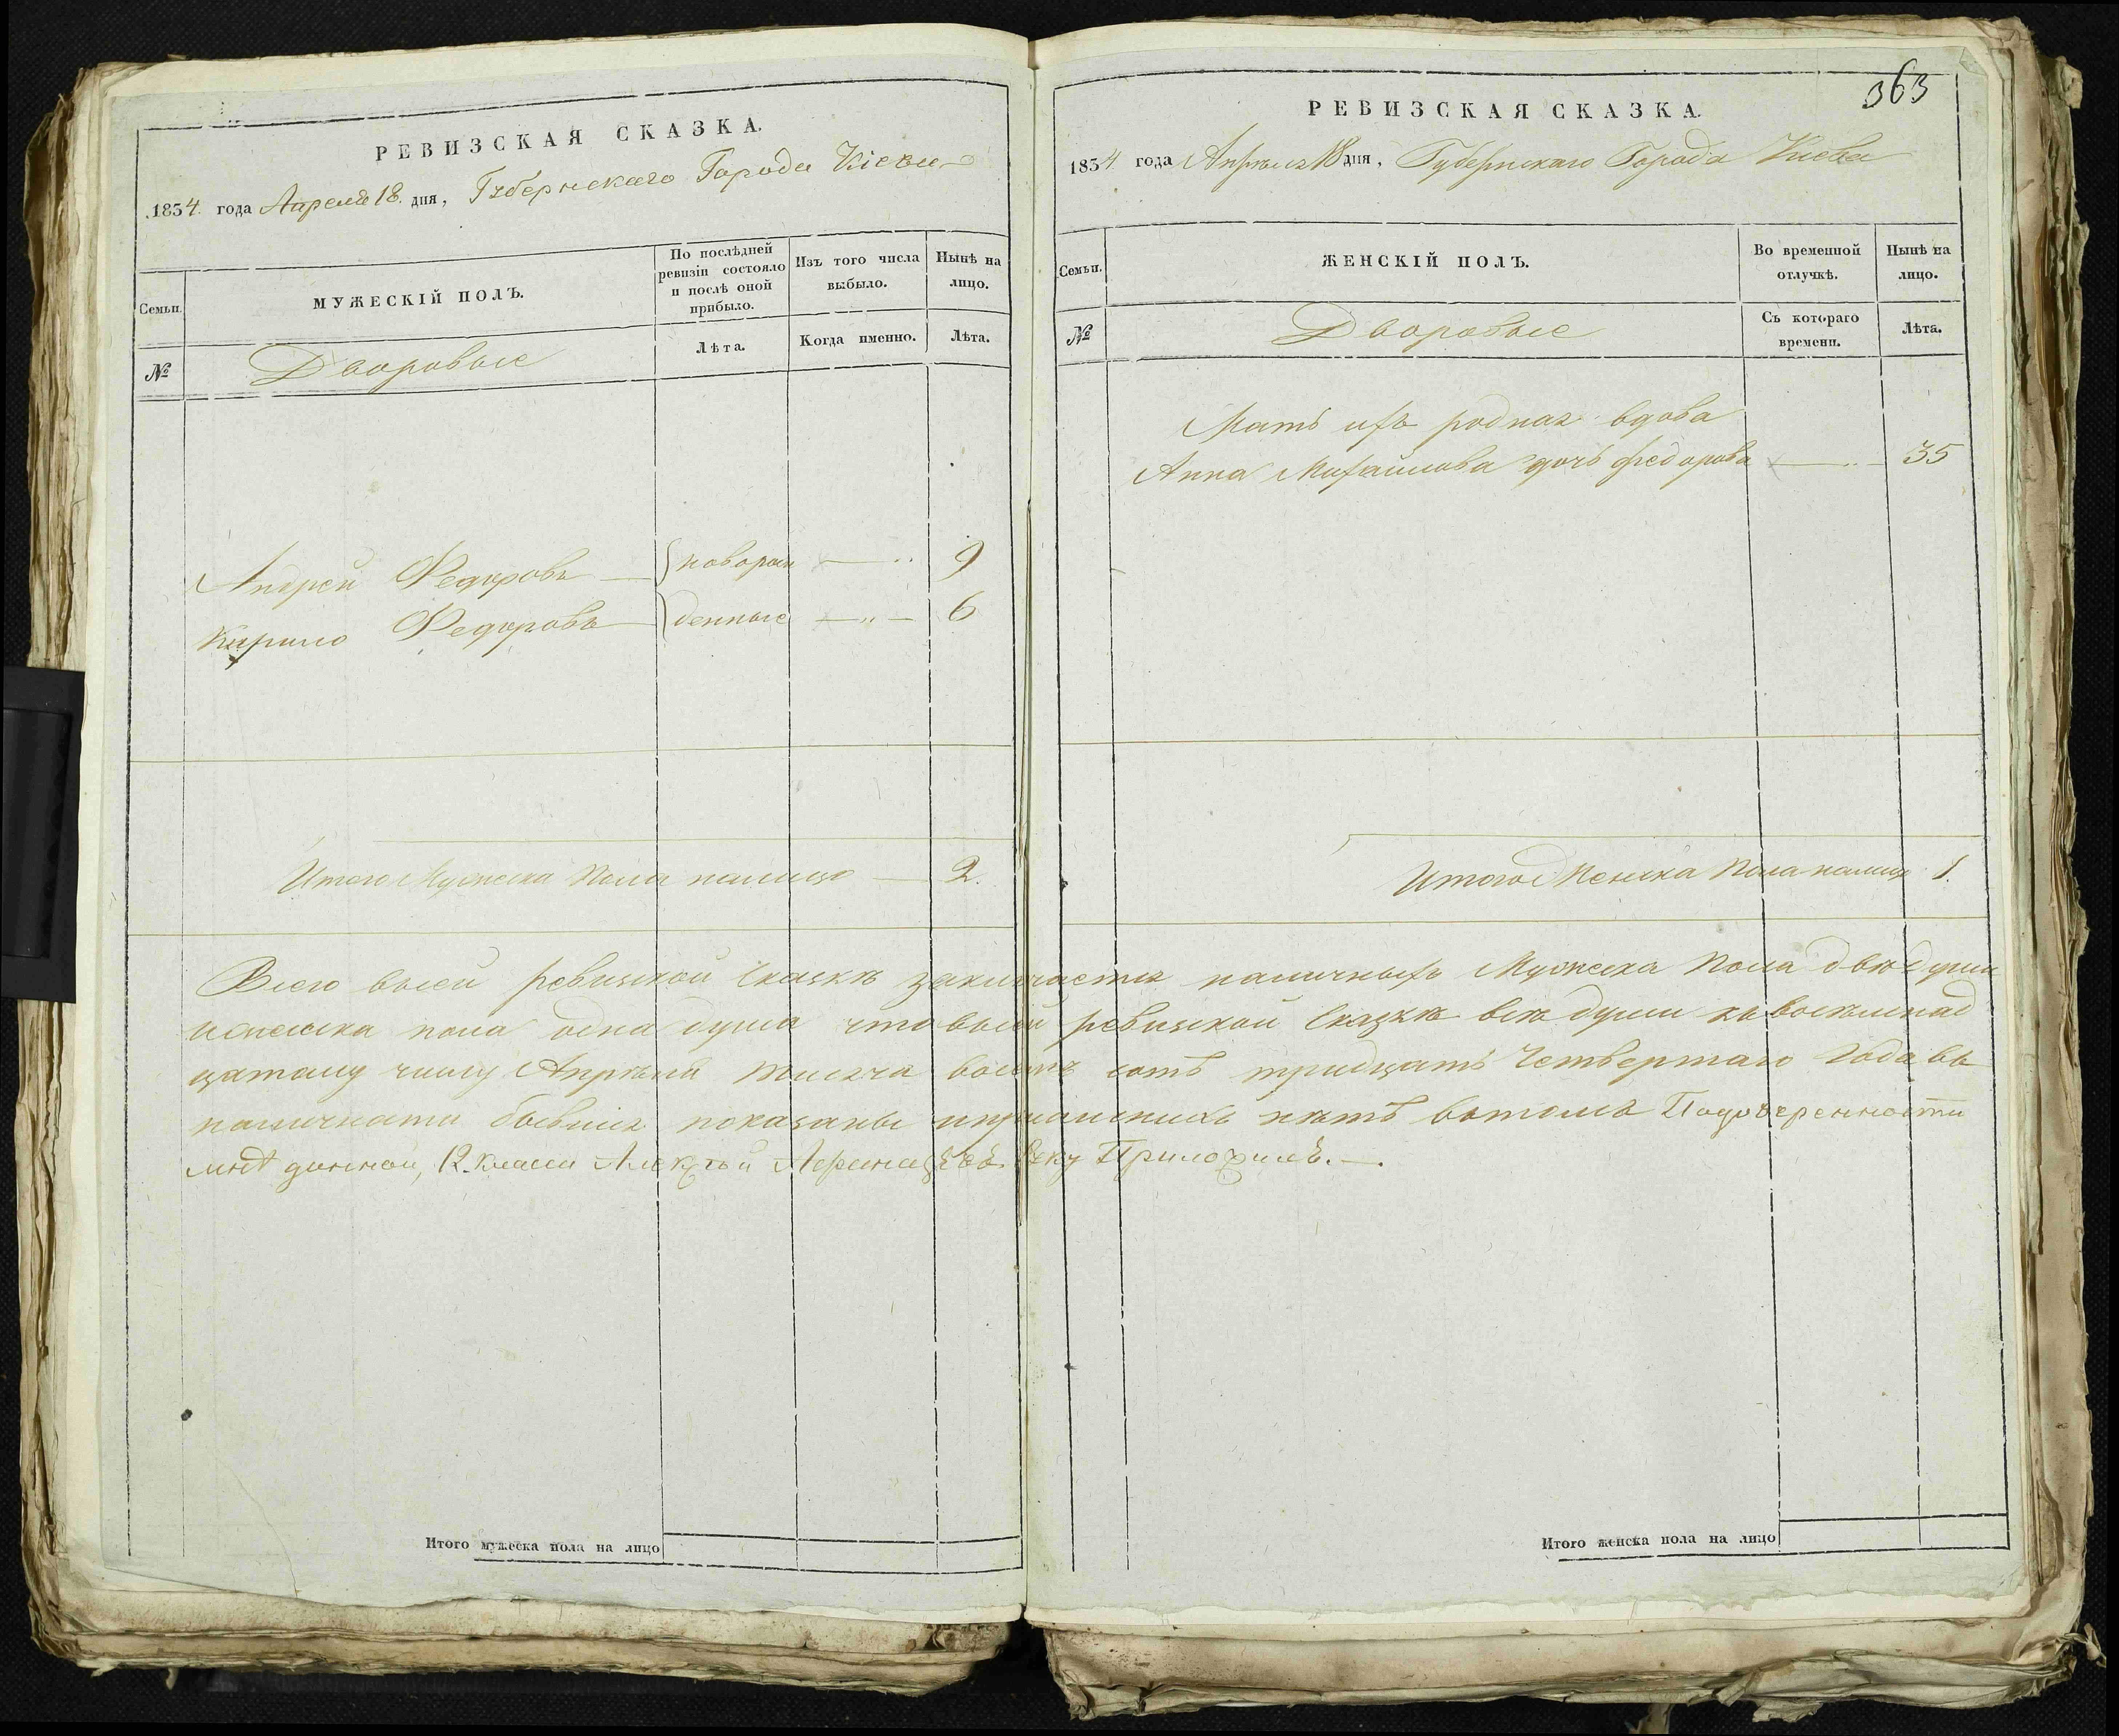 РЕВИЗСКАЯ СКАЗКА.
1834 года Апреля 18. дня, Губернскаго Города Кіева
Семьи.
МУЖЕСКІЙ ПОЛЪ.
По послѣдней ревизіи состояло и послѣ оной прибыло.
Изъ того числа выбыло.
Нынѣ на лицо.
№
Дворовые
Лѣта.
Когда именно.
Лѣта.
Андрей Федоровъ — новорож — „ 9
Кирило Федоровъ — денные — „ — 6
Итого Мужеска Пола налицо — 2.
363
РЕВИЗСКАЯ СКАЗКА.
1834 года Апрѣля 18 дня, Губернскаго Города Киева
Семьи.
ЖЕНСКІЙ ПОЛЪ.
Во временной отлучкѣ.
Нынѣ на лицо.
№
Дворовые
Съ котораго времени.
Лѣта.
Мать ихъ родная вдова
Анна Михайлова дочь Федорова — „ — 35
Итого Женска Пола налицо 1.
Всего всей ревизской Сказкѣ заключается наличныхъ Мужеска Пола двѣ души
иженска пола одна душа что всей ревизской Сказкѣ всѣ души къ восемнад
цатому числу Апрѣля тысяча восемь сотъ тридцать Четвертаго Года въ
наличности бывшіе показаны ипрописныхъ нѣтъ вътомъ Подоверенности
мнѣ данной, 12. класса Алексѣй руку Приложилъ. —.
Итого мужеска пола на лицо
Итого женска пола на лицо